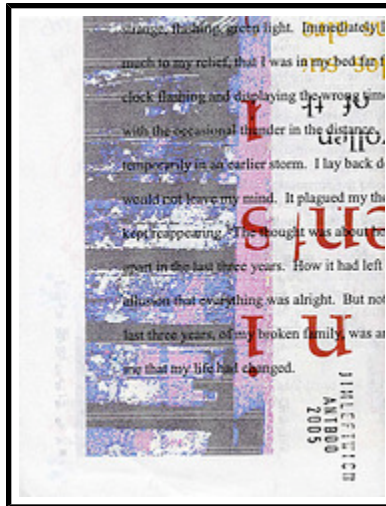 strange, flashing, green light. Immediately I
much to my relief, that I was in my bed far f
clock flashing and displaying the wrong time
with the occasional thunder in the distance.
temporarily in an earlier storm. I lay back do
would not leave my mind. It plagued my tho
kept reappearing. The thought was about ho
apart in the last three years. How it had left
allusion that everything was alright. But not
last three years, of my broken family, was an
me that my life had changed.
JIMLEFTWICH
ANTBOO
2005